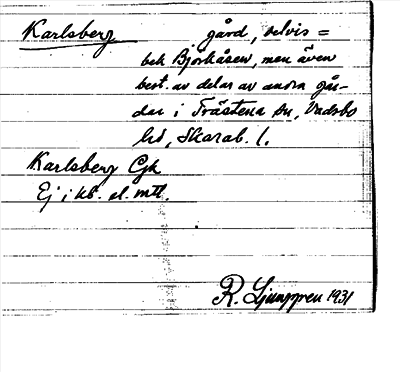 Karlsberg gård, delvis =
bek Björkåsen, men även
best. av delar av andra går-
dar i Trästena sn, Vadsbo
hd, Skarab. l.
Karlsberg Cgk
Ej i kb. el. mtl.
R. Ljunggren 1931